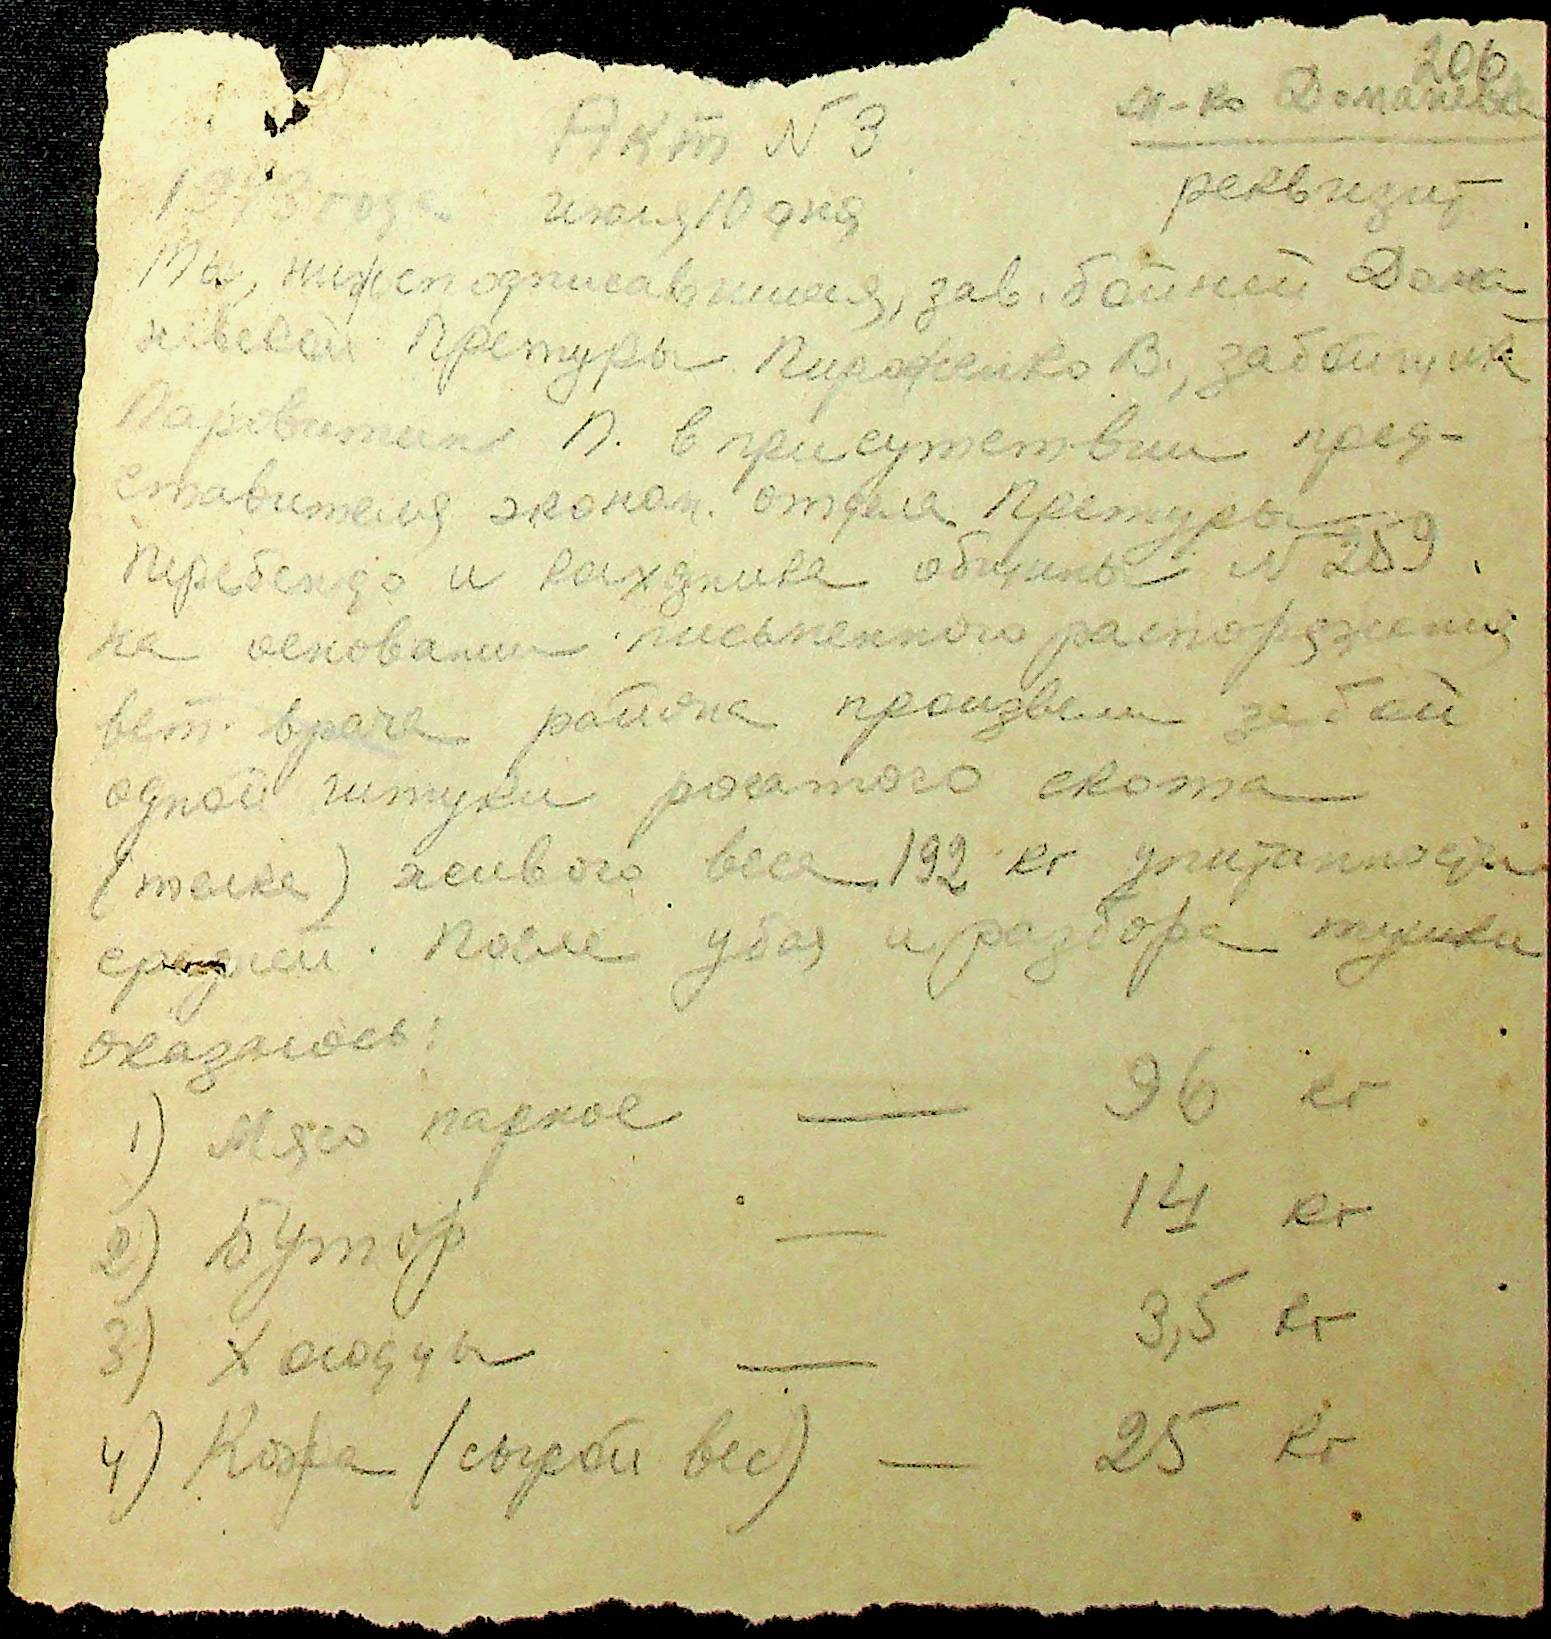 206
м-ко Доманевка
Акт N 3
реквизит
1943 года июля 10 дня
Мы, нижеподписавшиеся, зав. бойней Дома
невской Претуры Пироженко В., забойщик
П. в присутствии пред-
ставителя эконом. отдела Претуры
Перебендо и общины N 259
на основании письменного распоряжения
вет. врача района произвели забой
одной штуки рогатого скота
(телка) живого веса 192 кг упитанности
средней. После убоя и разбора тушки
оказалось:
1) Мясо парное — 96 кг
2) Бутор — 14 кг
3) Холодцы — 3,5 кг
4) Кожа (сырой вес) — 25 кг